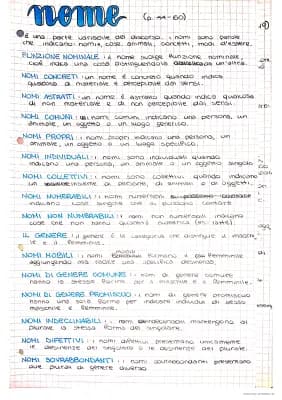 nome (p. 44-60)
È una parte variabile del discorso. I nomi sono parole
che indicano: nomi, cose, animali, concetti, modi d'essere.
FUNZIONE NOMINALE: il nome svolge funzione nominale,
cioè indica una cosa distinguendola da un'altra.
NOMI CONCRETI: un nome è concreto quando indica
qualcosa di materiale e percepibile dai sensi.
NOMI ASTRATTI: un nome è astratto quando indica qualcosa
di non materiale e di non percepibile dai sensi.
NOMI COMUNI: i nomi comuni indicano una persona, un
animale, un oggetto o un luogo generico.
NOMI PROPRI: i nomi propri indicano una persona, un
animale, un oggetto o un luogo specifico.
NOMI INDIVIDUALI: i nomi sono individuali quando
indicano una persona, un animale o un oggetto singolo
NOMI COLLETTIVI: i nomi sono collettivi quando indicano
un insieme di persone, di animali o di oggetti.
NOMI NUMERABILI: i nomi numerabili
indicano cose singole che si possono contare
NOMI NON NUMERABILI: i nomi non numerabili indicano
cose che non hanno quantità
IL GENERE: il genere è la categoria che distingue il maschi-
le e il femminile.
NOMI MOBILI: i nomi mobili formano il femminile
aggiungendo alla radice una specifica desinenza.
NOMI DI GENERE COMUNE: i nomi di genere comune
hanno la stessa forma per il maschile e il femminile.
NOMI DI GENERE PROMISCUO: i nomi di genere promiscuo
hanno una sola forma per indicare individui di sesso
maschile e femminile.
NOMI INDECLINABILI: i nomi indeclinabili mantengono al
plurale la stessa forma del singolare.
NOMI DIFETTIVI: i nomi difettivi presentano unicamente
le desinenze del singolare o le desinenze del plurale.
NOMI SOVRABBONDANTI: i nomi sovrabbondanti presentano
due plurali di genere diverso